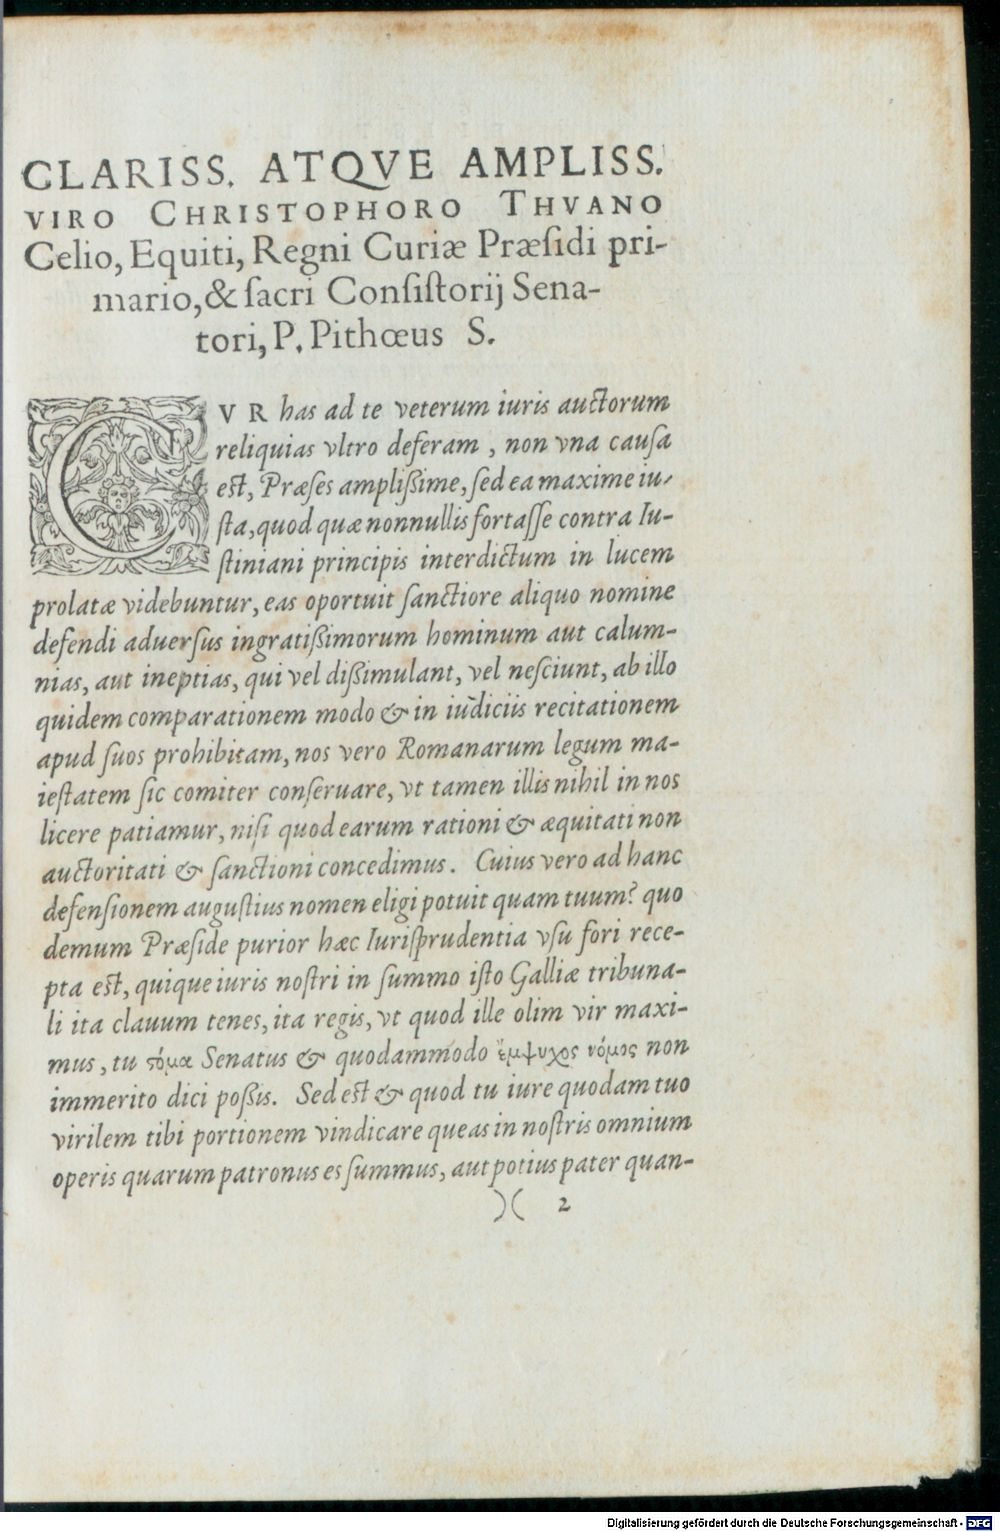 CLARISS. ATQVE AMPLISS.
VIRO CHRISTOPHORO THVANO
Celio, Equiti, Regni Curiæ Præſidi pri-
mario, & ſacri Conſiſtorij Sena-
tori, P. Pithœus S.
CVR has ad te veterum iuris auctorum
reliquias vltro deferam, non vna cauſa
est, Præſes ampliſſime, ſed ea maxime iu-
ſta, quod quæ nonnullis fortaſſe contra Iu-
ſtiniani principis interdictum in lucem
prolatæ videbuntur, eas oportuit ſanctiore aliquo nomine
defendi aduerſus ingratiſſimorum hominum aut calum-
nias, aut ineptias, qui vel diſſimulant, vel neſciunt, ab illo
quidem comparationem modo & in iudiciis recitationem
apud ſuos prohibitam, nos vero Romanarum legum ma-
ieſtatem ſic comiter conſeruare, vt tamen illis nihil in nos
licere patiamur, niſi quod earum rationi & æquitati non
auctoritati & ſanctioni concedimus. Cuius vero ad hanc
defenſionem auguſtius nomen eligi potuit quam tuum? quo
demum Præſide purior hæc Iuriſprudentia vſu fori rece-
pta est, quique iuris noſtri in ſummo iſto Galliæ tribuna-
li ita clauum tenes, ita regis, vt quod ille olim vir maxi-
mus, tu ςόμα Senatus & quodammodo ἔμψυχος νόμος non
immerito dici poſſis. Sed est & quod tu iure quodam tuo
virilem tibi portionem vindicare queas in noſtris omnium
operis quarum patronus es ſummus, aut potius pater quan-
)( 2
Digitalisierung gefördert durch die Deutsche Forschungsgemeinschaft - DFG